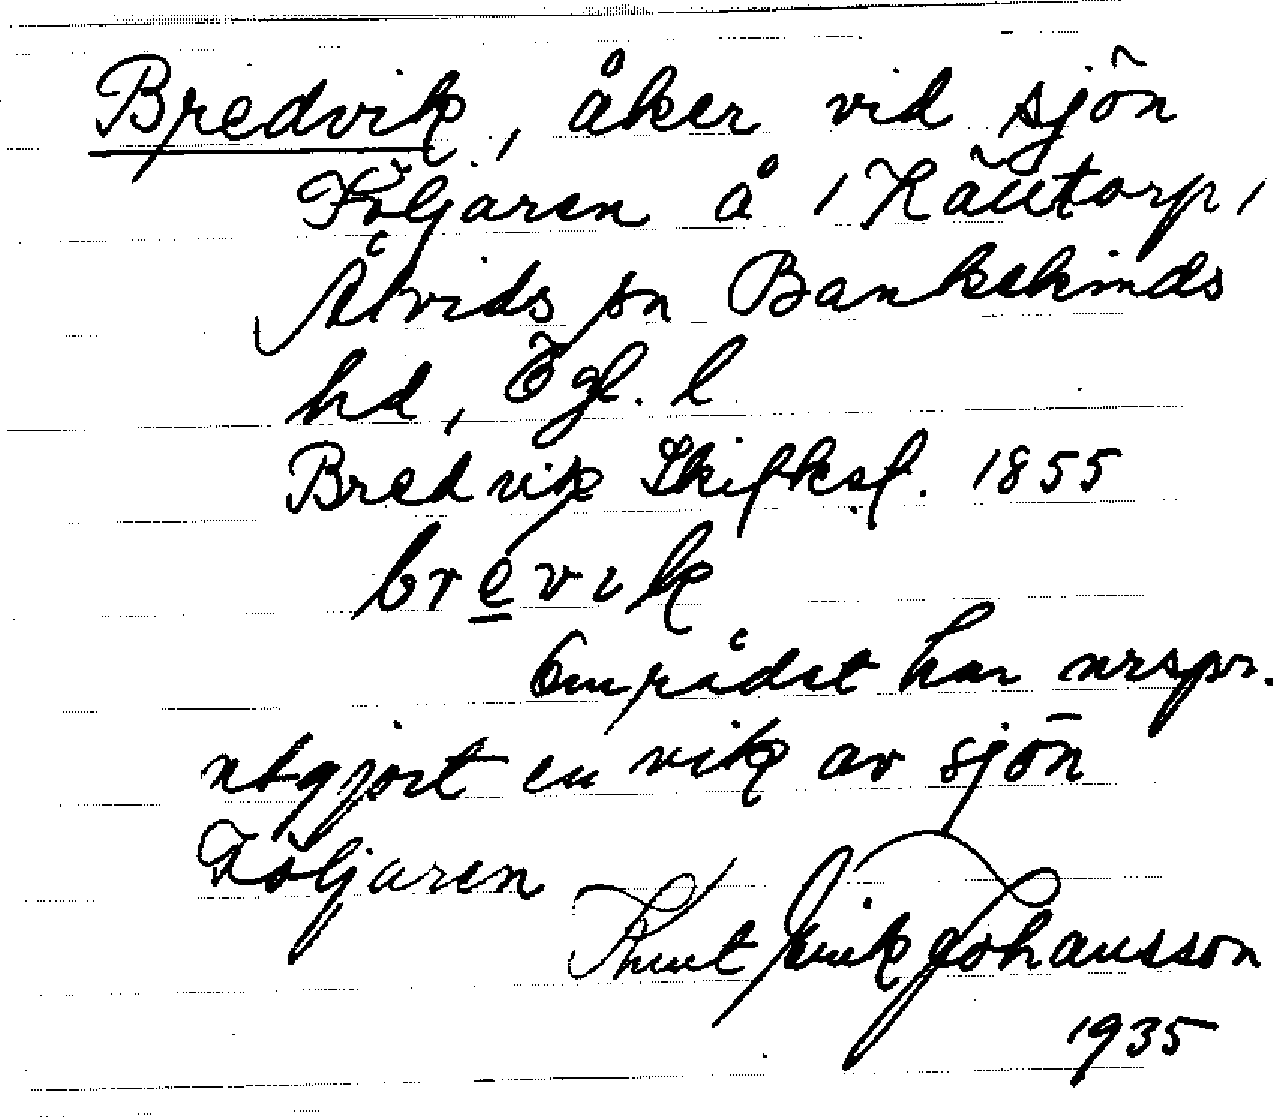 Bredvik, åker vid sjön
Följaren å 1 Käntorp,
Åtvids sn Bankekinds
hd, Ögl. l
Bredvik Skifksf. 1855
brevik
Området har urspr.
utgjort en vik av sjön
Följaren
Knut Erik Johansson
1935